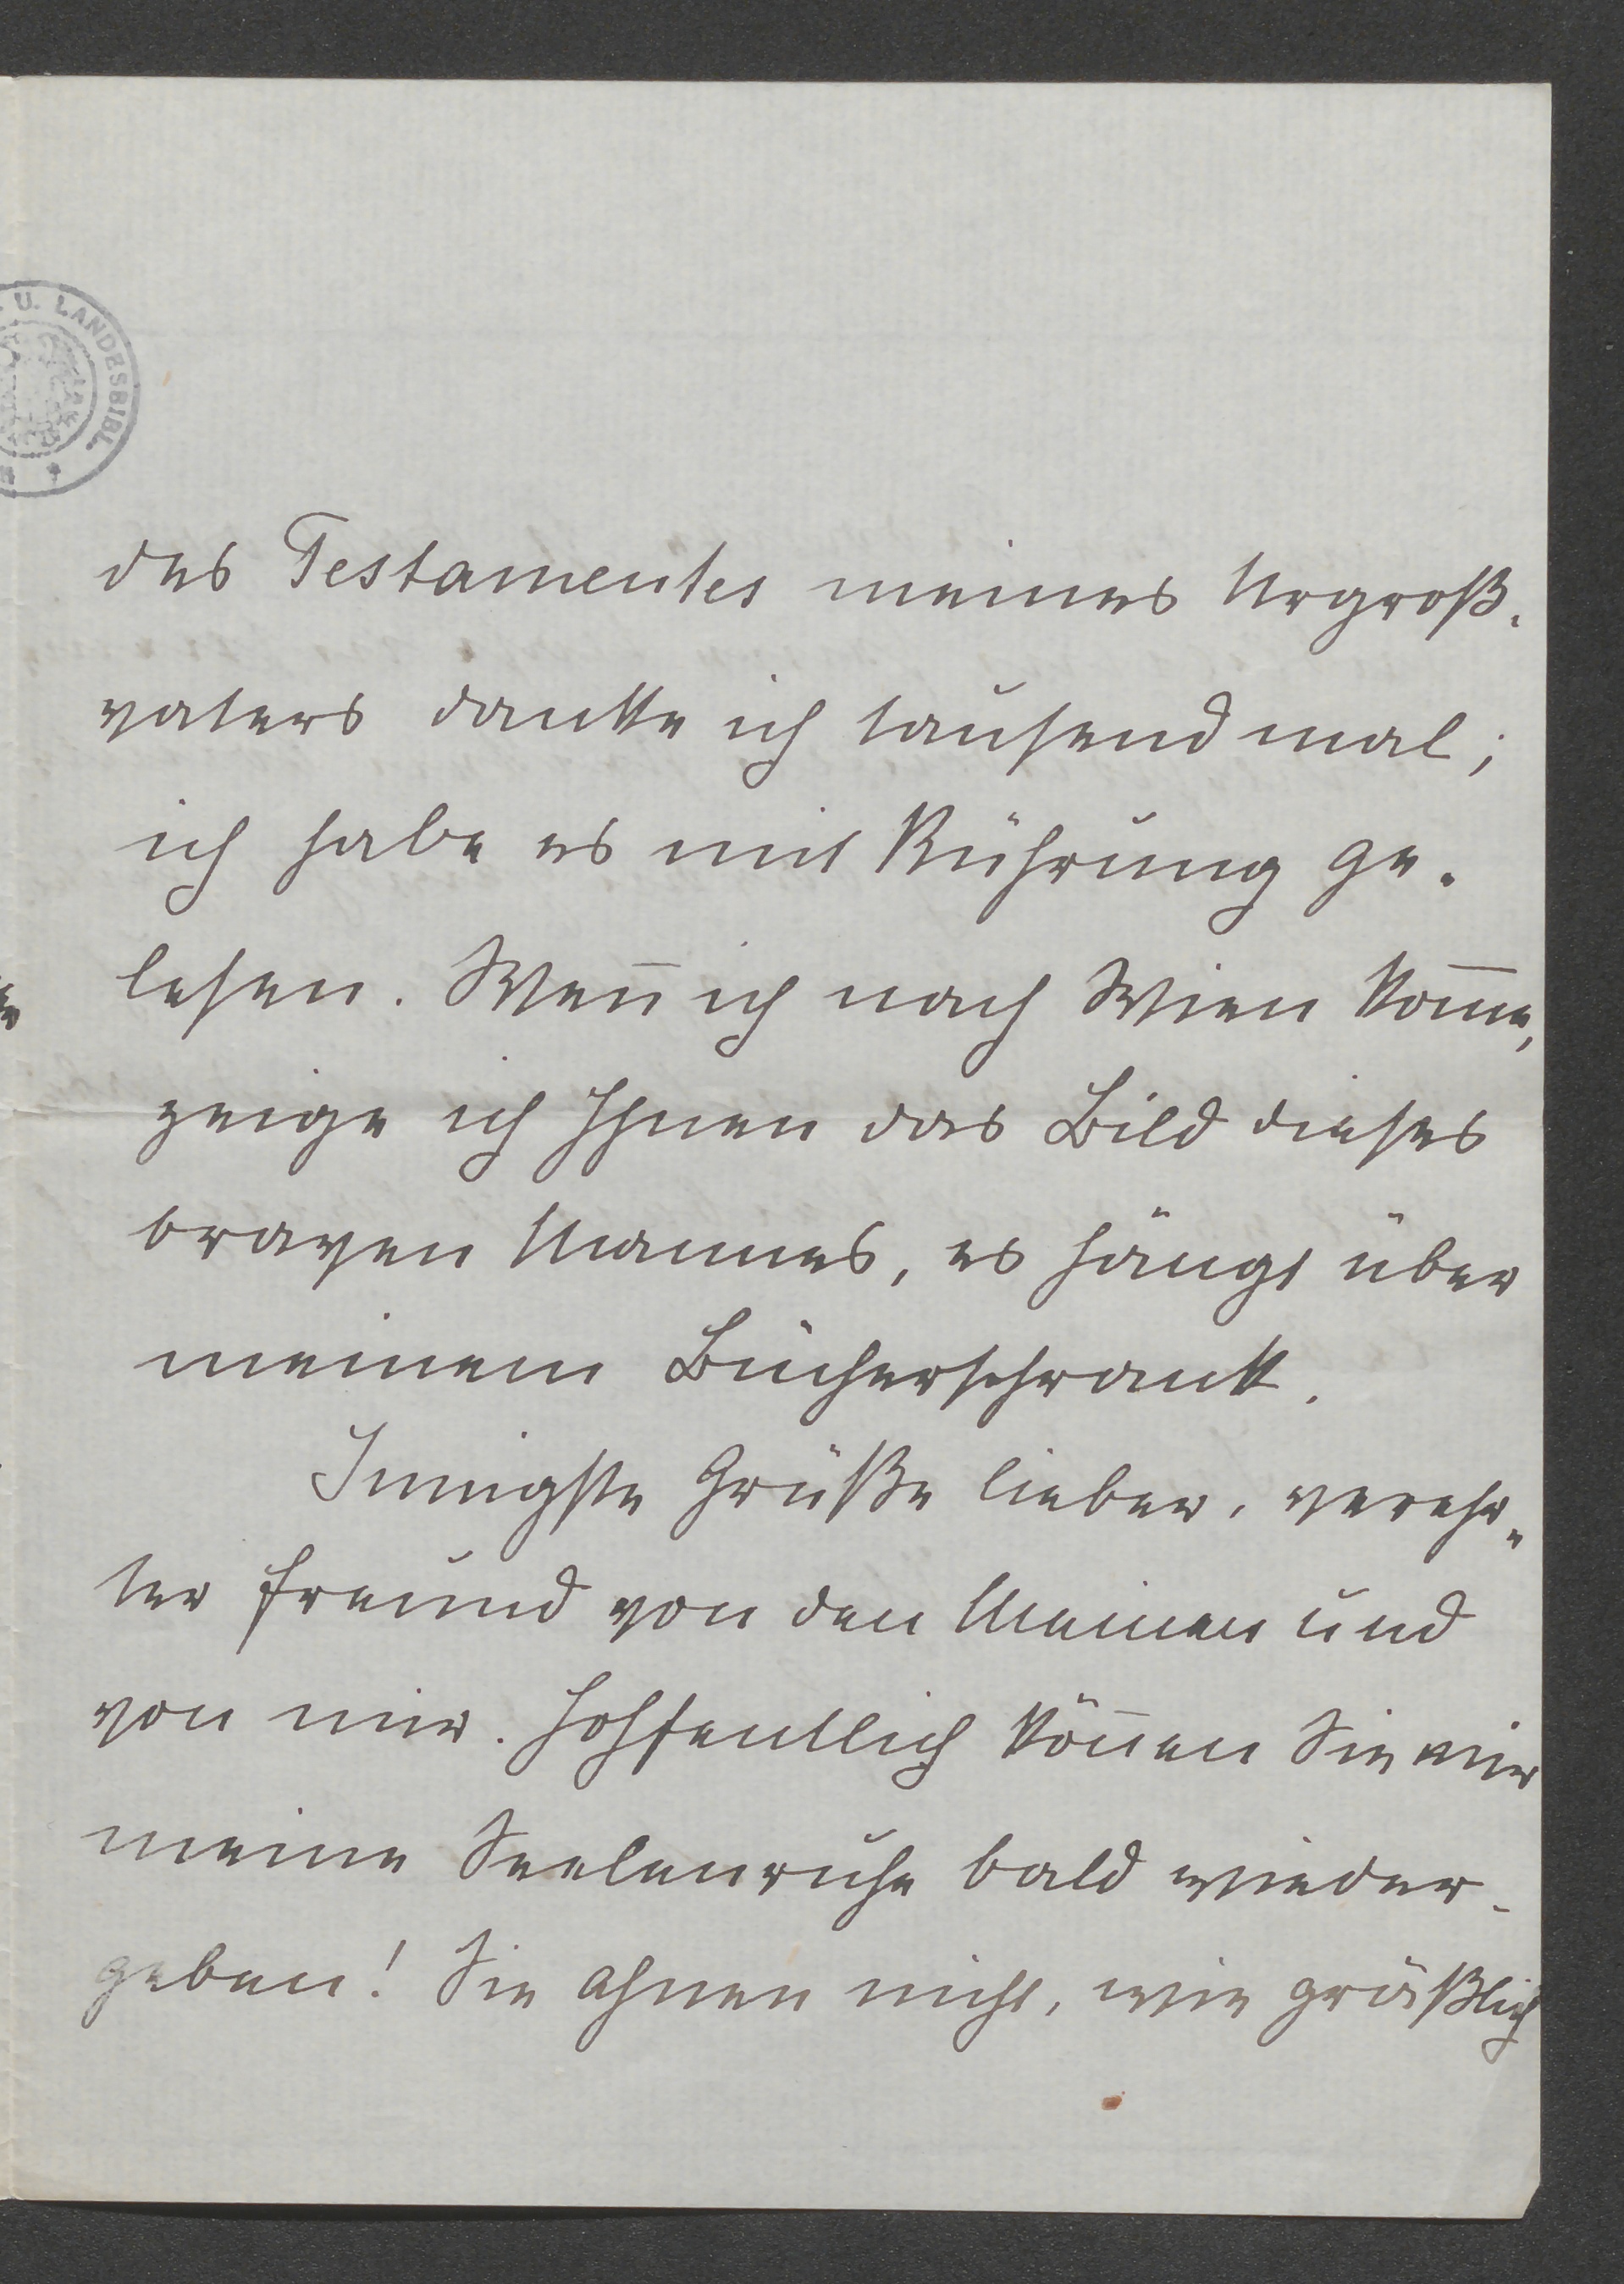 U. LANDESBIBL.
des Testamentes meines Urgroß-
vaters danke ich tausend mal;
ich habe es mit Rührung ge-
lesen. Wen̅ ich nach Wien kom̅e,
zeige ich Ihnen das Bild dieses
braven Mannes, es hängt über
meinem Bücherschrank.
Innigste Grüße lieber, verehr-
ter Freund von den Meinen und
von mir. Hoffentlich kön̅en Sie mir
meine Seelenruhe bald wieder-
geben! Sie ahnen nicht, wie gräßlich